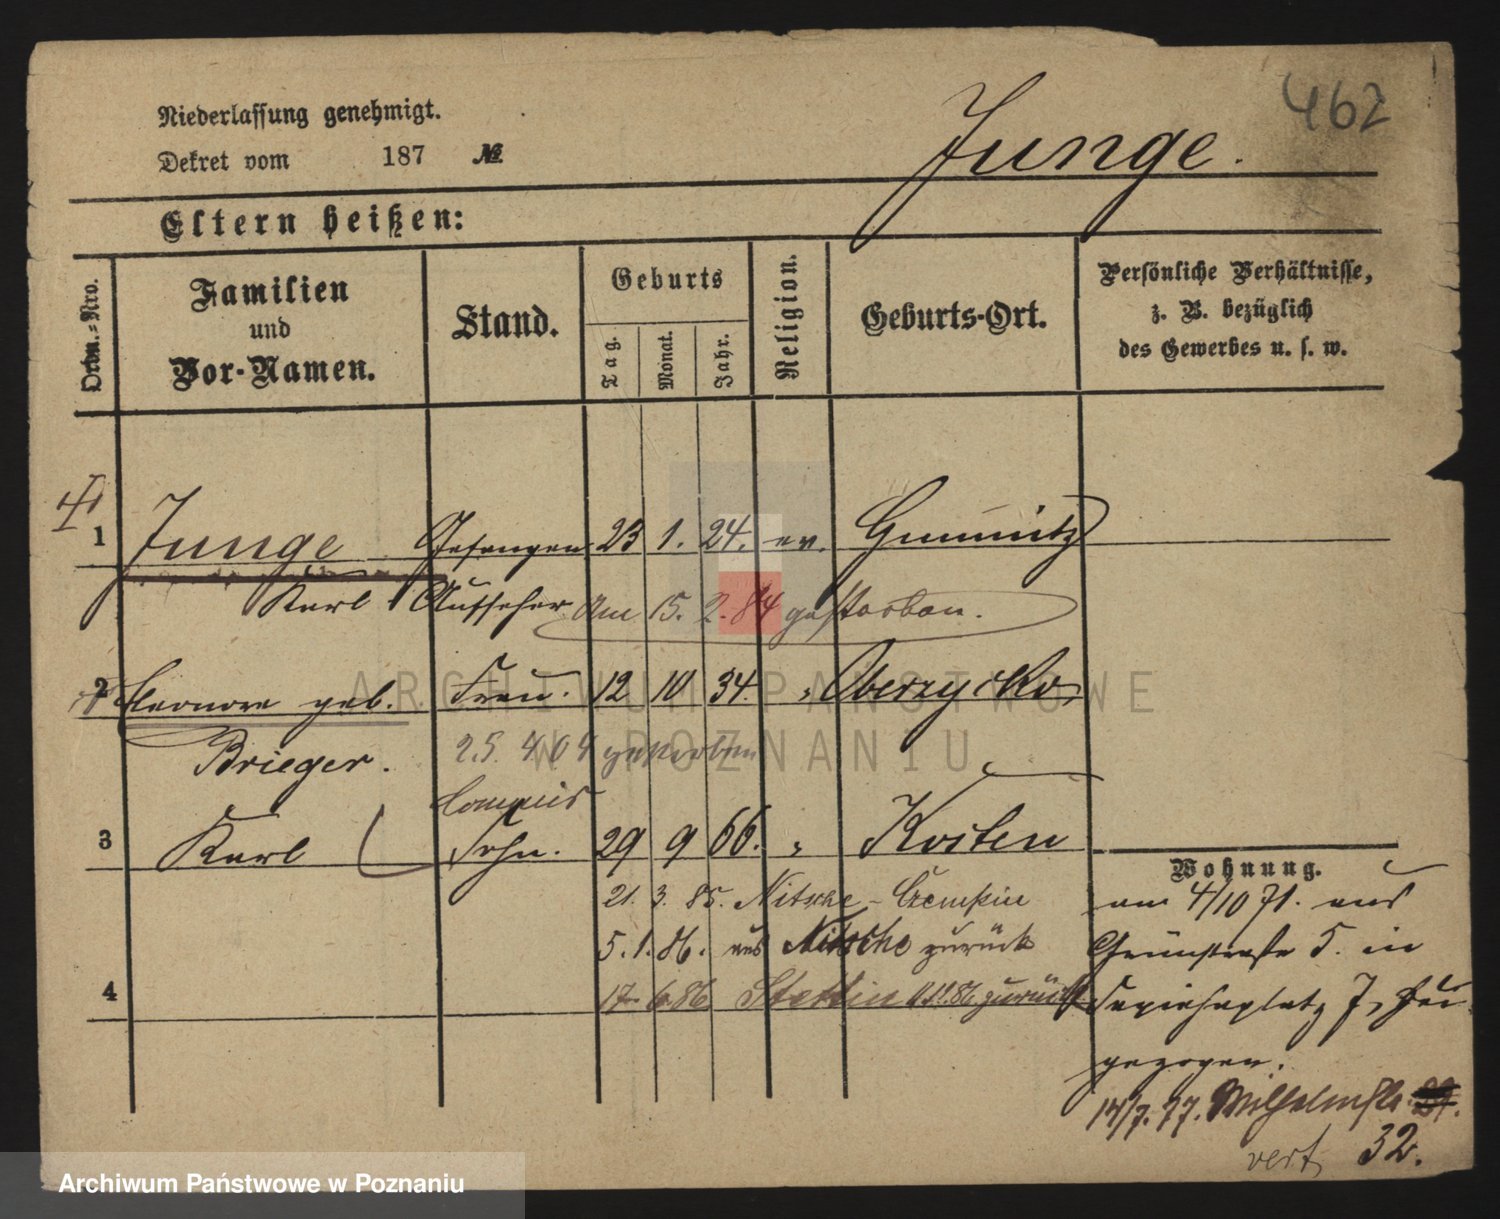 462
Niederlassung genehmigt.
Dekret vom 187 №
Junge.
Eltern heißen:
Ordn.-Nro.
Familien
und
Vor-Namen.
Stand.
Geburts
Tag.
Monat.
Jahr.
Religion.
Geburts-Ort.
Persönliche Verhältnisse,
z. B. bezüglich
des Gewerbes u. s. w.
1 Junge Gefangen 23 1. 24. ev.
Karl Aufseher Am 15. 2. 84 gestorben.
2 Eleonore geb. Frau. 12 10 34. " Oberzycko
Brieger. 25. 4 04 gestorben
Commis
3 Karl Sohn. 29 9 66. " Kosten
Wohnung.
21. 3. 85. Nitsche - Czempin
am 4/10 71. aus
5. 1. 86. aus Nitsche zurück
Grünstraße 5. in
4 17. 6. 86 Stettin 11.11.86 zurück
Sapiehaplatz 7,
gezogen.
14/7. 77. Wilhelmstr.
vert. 32.
ARCHIWUM PAŃSTWOWE
W POZNANIU
Archiwum Państwowe w Poznaniu